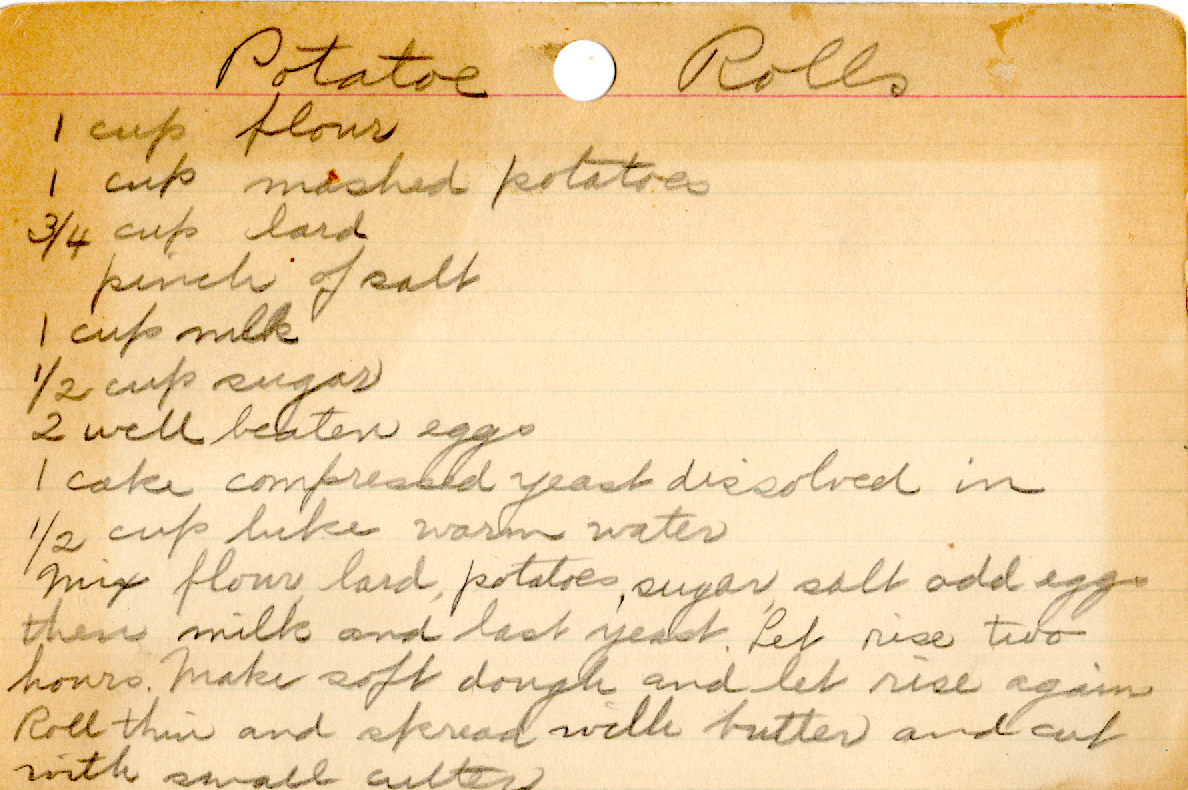 Potatoe Rolls
1 cup flour
1 cup mashed potatoes
3/4 cup lard
pinch of salt
1 cup milk
1/2 cup sugar
2 well beaten eggs
1 cake compressed yeast dissolved in
1/2 cup luke warm water
Mix flour, lard, potatoes, sugar, salt add eggs
then milk and last yeast. Let rise two
hours. Make soft dough and let rise again
Roll thin and spread with butter and cut
with small cutter